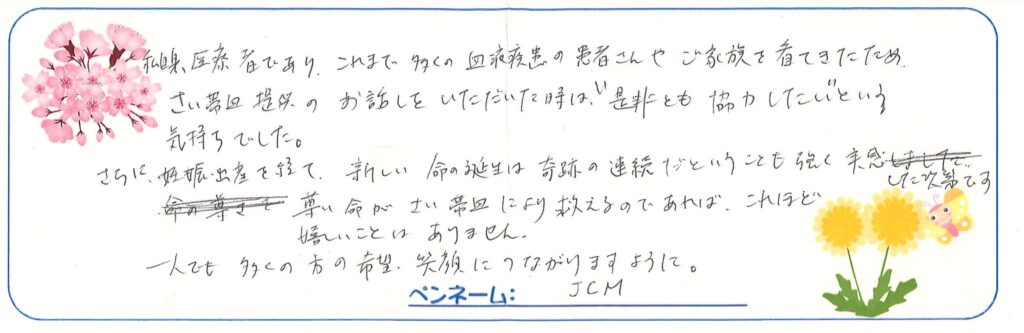 私自身、医療者であり、これまで多くの血液疾患の患者さんやご家族を看てきたため
さい帯血提供のお話しをいただいた時は、"是非とも協力したい"という
気持ちでした。
さらに、妊娠・出産を経て、新しい命の誕生は奇跡の連続だということも強く実感しました。
した次第です
命の尊さを 尊い命がさい帯血により救えるのであれば、これほど
嬉しいことはありません。
一人でも多くの方の希望、笑顔につながりますように。
ペンネーム: JCM